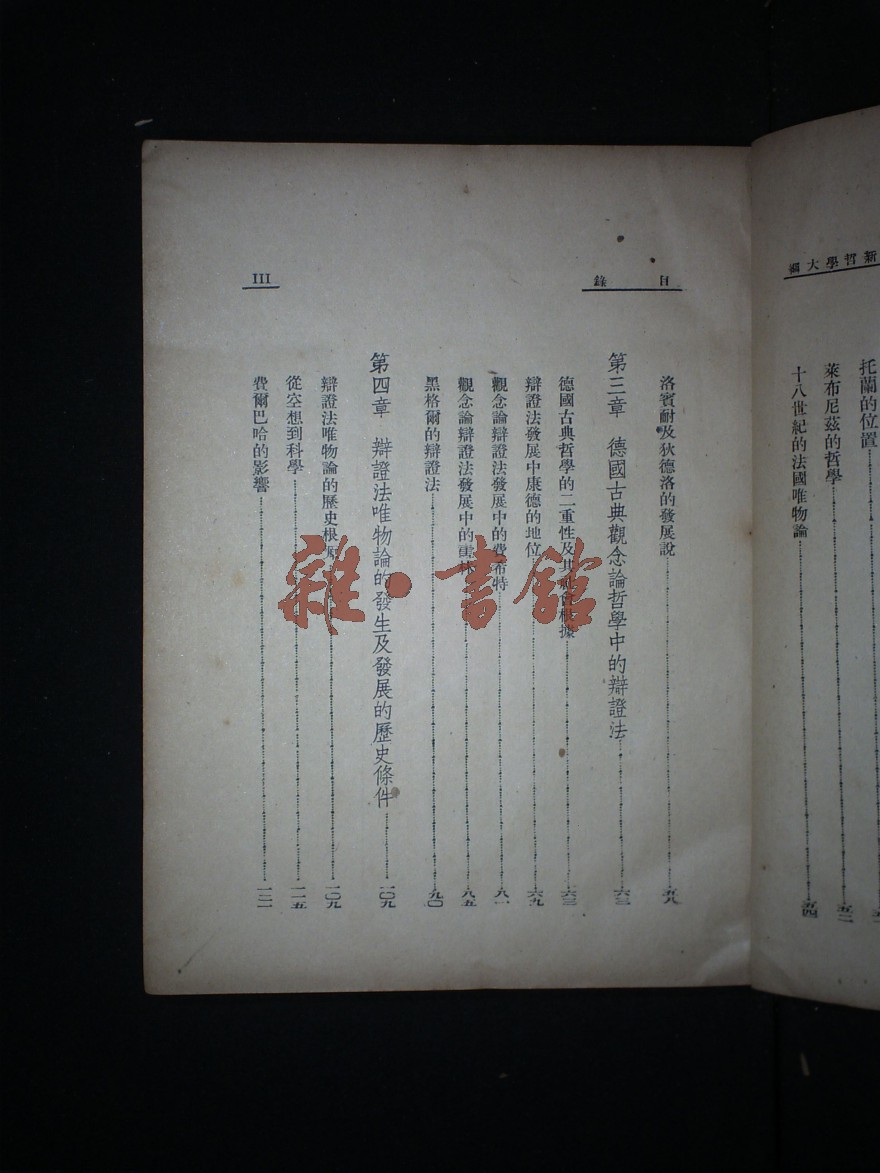 新哲學大綱
托蘭的位置
萊布尼茲的哲學 五二
十八世紀的法國唯物論 五四
目錄
III
洛賓耐及狄德洛的發展說 五八
第三章 德國古典觀念論哲學中的辯證法 六三
德國古典哲學的二重性及其社會根據 六三
辯證法發展中康德的地位 六九
觀念論辯證法發展中的費希特 八一
觀念論辯證法發展中的雪林 八五
黑格爾的辯證法 九〇
第四章 辯證法唯物論的發生及發展的歷史條件 一〇九
辯證法唯物論的歷史根據 一〇九
從空想到科學 一一五
費爾巴哈的影響 一二一
雜·書館